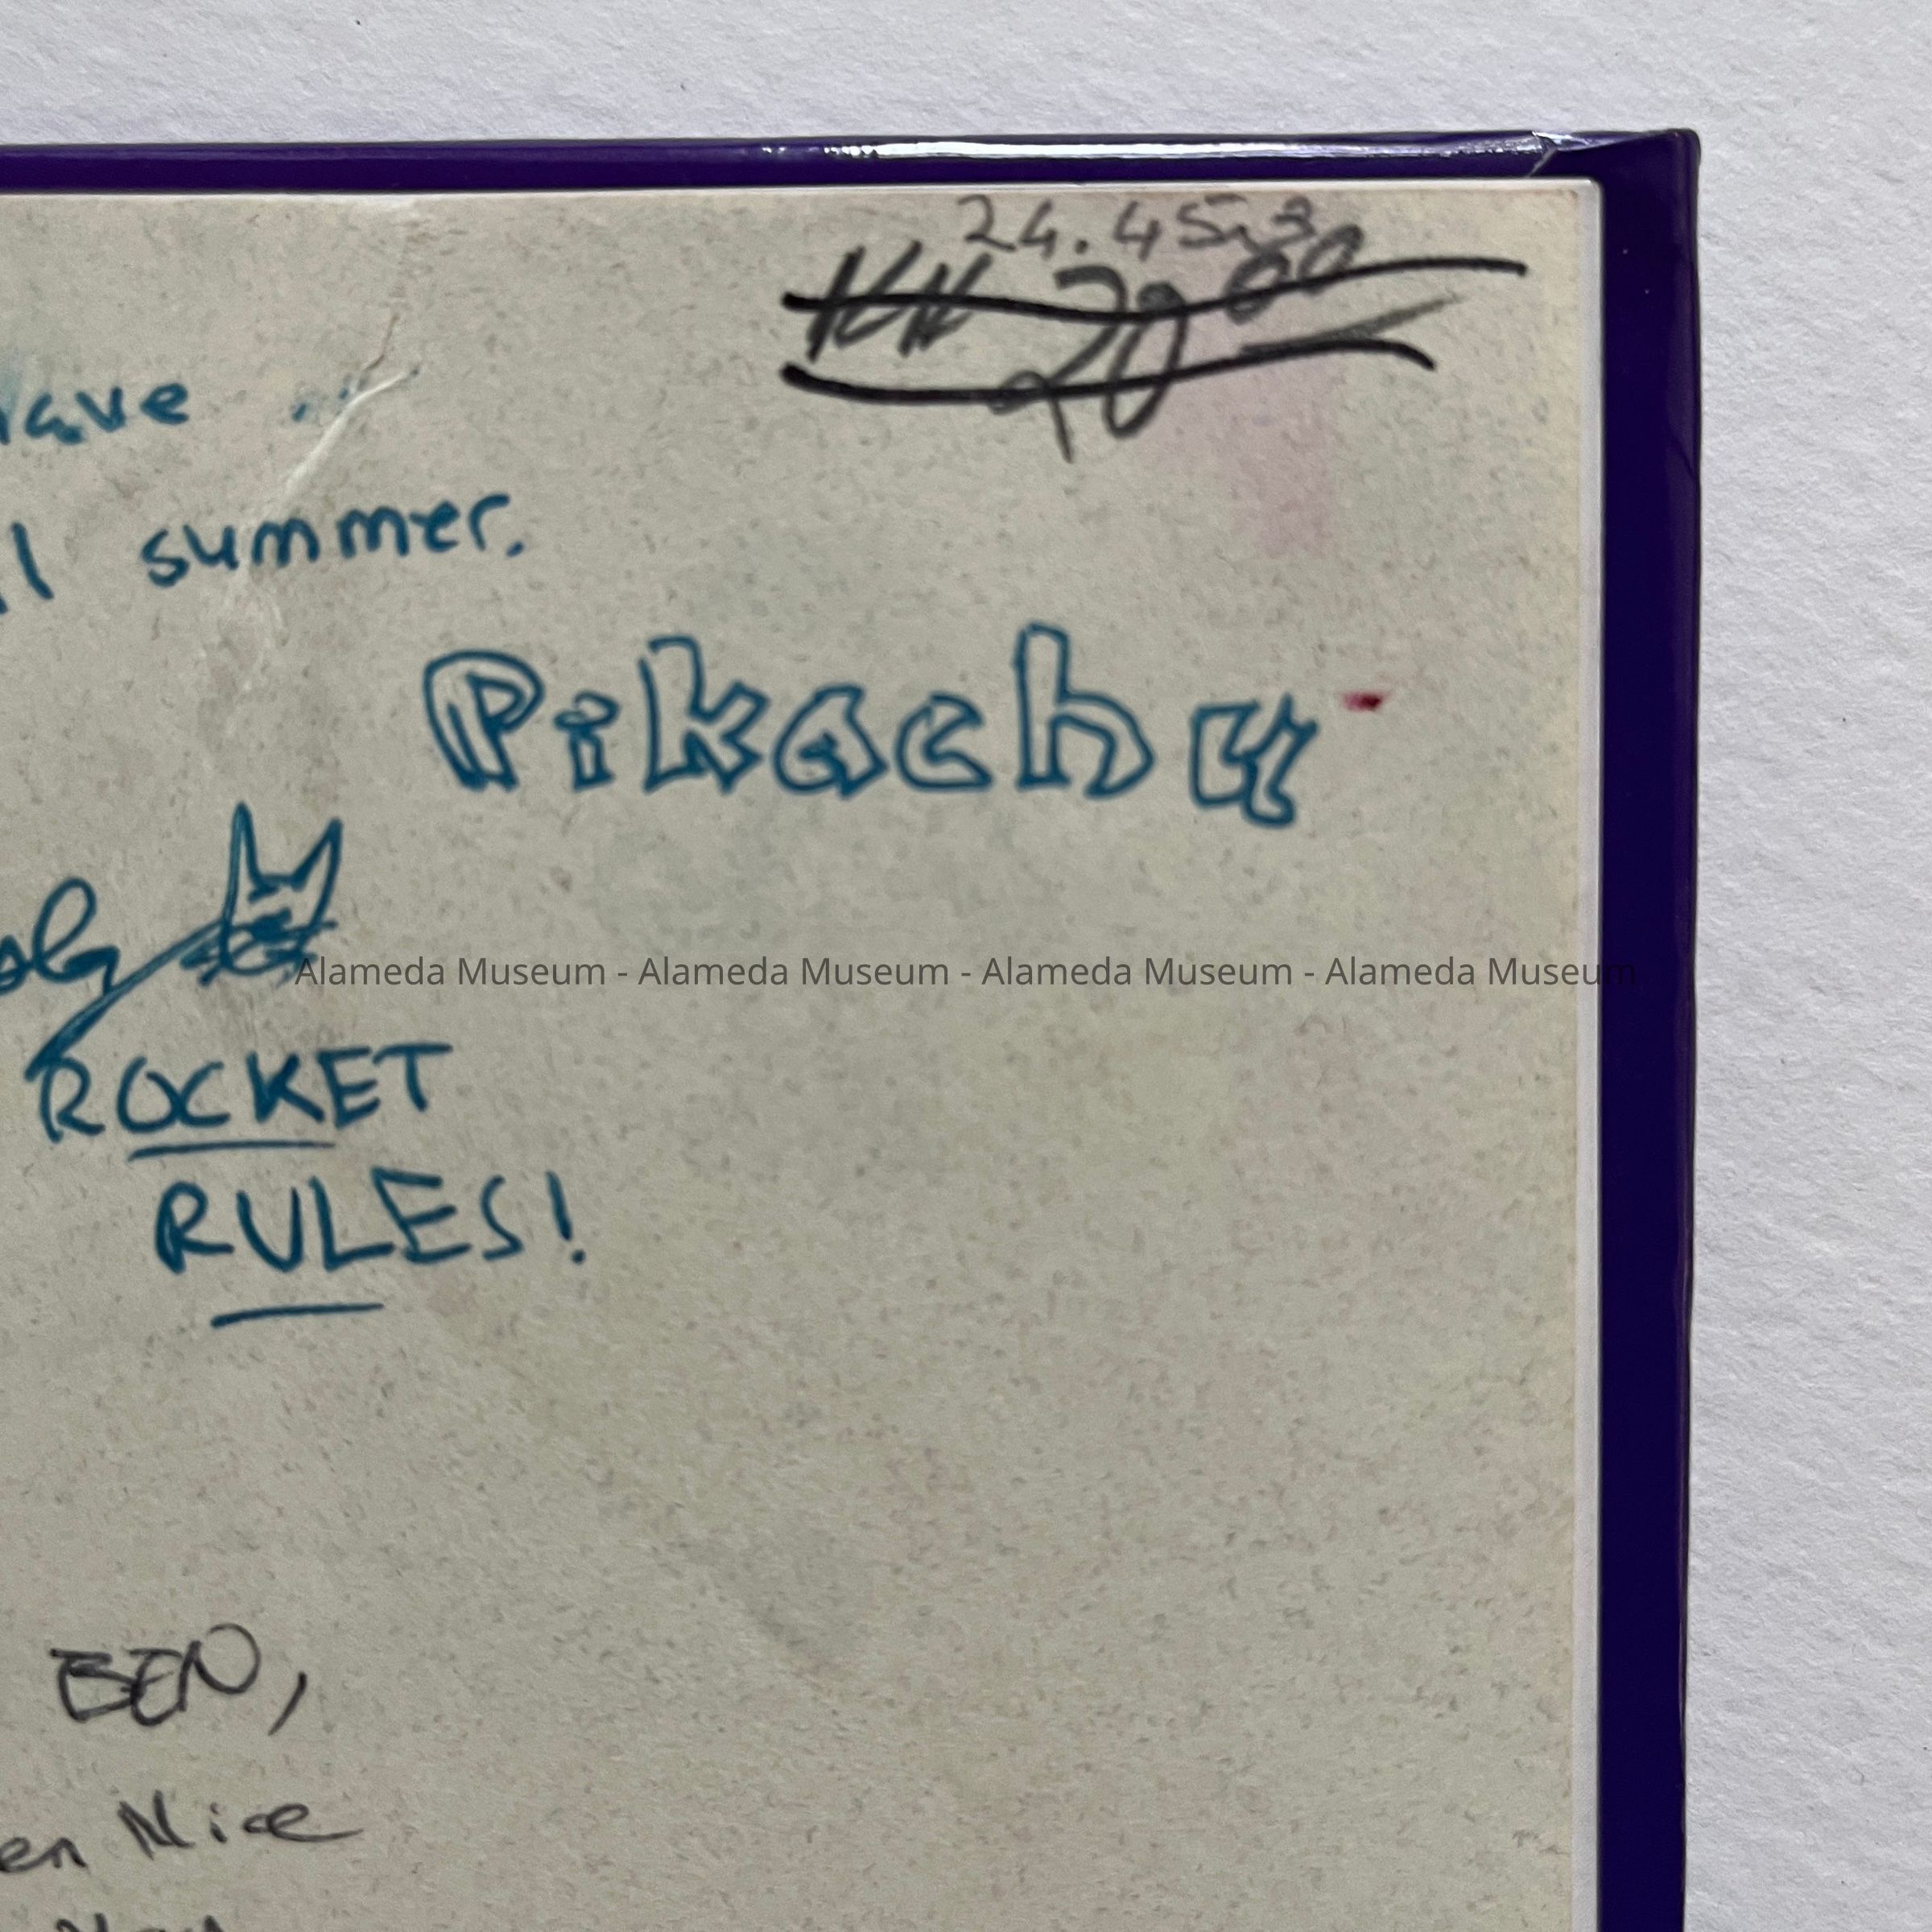 24.45.3
20.00
have
summer.
Pikachu
Alameda Museum - Alameda Museum - Alameda Museum - Alameda Museum
ROCKET
RULES!
BEN,
Nice